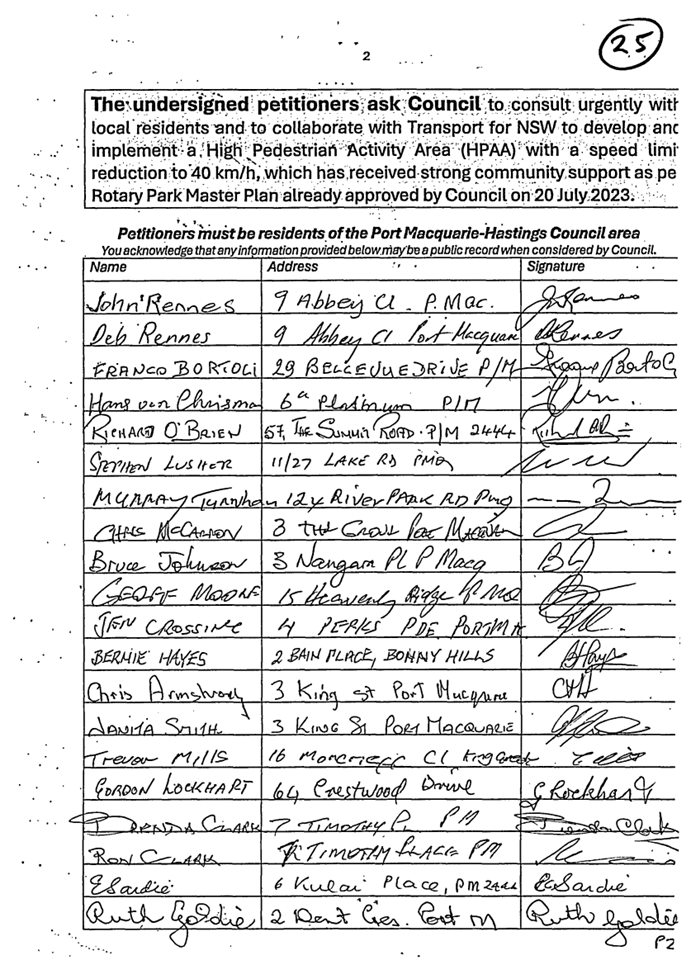 25
2
The undersigned petitioners ask Council to consult urgently with
local residents and to collaborate with Transport for NSW to develop and
implement a High Pedestrian Activity Area (HPAA) with a speed limi
reduction to 40 km/h, which has received strong community support as pe
Rotary Park Master Plan already approved by Council on 20 July 2023.
Petitioners must be residents of the Port Macquarie-Hastings Council area
You acknowledge that any information provided below may be a public record when considered by Council.
Name Address Signature
John Rennes 9 Abbey Cl. P. Mac. J Rennes
Deb Rennes 9 Abbey Cl Port Macquarie DRennes
FRANCO BORTOLI 29 BELLEVUE DRIVE P/M Franco Bortoli
Hans van Chrisma 6a Platinum P/M
RICHARD O'BRIEN 57, THE SUMMIT ROAD. P/M 2444
STEPHEN LUSHER 11/27 LAKE RD PMQ
MURRAY Turnham 124 RIVER PARK RD PMQ
CHRIS McCARRON 3 THE Port Macquarie
Bruce Johnson 3 Nangara PL P Macq BJ
GEOFF MOORE 15 Heavenly Ridge P. MQ
JEN CROSSING 4 PERKS PDE PORT MA
BERNIE HAYES 2 BAIN PLACE, BONNY HILLS BHays
Chris Armstrong 3 King st Port Macquarie CHA
JANITA SMITH 3 KING St PORT MACQUARIE
Trevor Mills 16 Moncrieff Cl
GORDON LOCKHART 64 Crestwood Drive G Lockhart
BRENDA CLARK 7 TIMOTHY PL PM Brenda Clark
RON CLARK 7 TIMOTHY PLACE PM
E Sardie 6 Kulai Place, PM 2444 E Sardie
Ruth Goldie 2 Dent Cres. Port M Ruth Goldie
P2